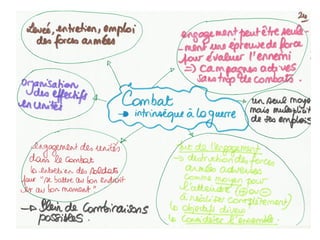 Levée, entretien, emploi
des forces armées
24
engagement peut être seule-
ment une épreuve de force
pour évaluer l'ennemi
=> Campagnes actives
sans trop de combats.
organisation
des effectifs
en unités
Combat
→ intrinsèque à la guerre
un seul moyen
mais multiplicité
de ses emplois
engagement des unités
dans le combat
des soldats
pour "se battre au bon endroit
et au bon moment"
→ Plein de combinaisons
possibles.
but de l'engagement
→ destruction des forces
armées adverses
comme moyen pour
l'atteindre (+ ou -
à réaliser complètement)
objectifs divers
considérer l'ensemble.